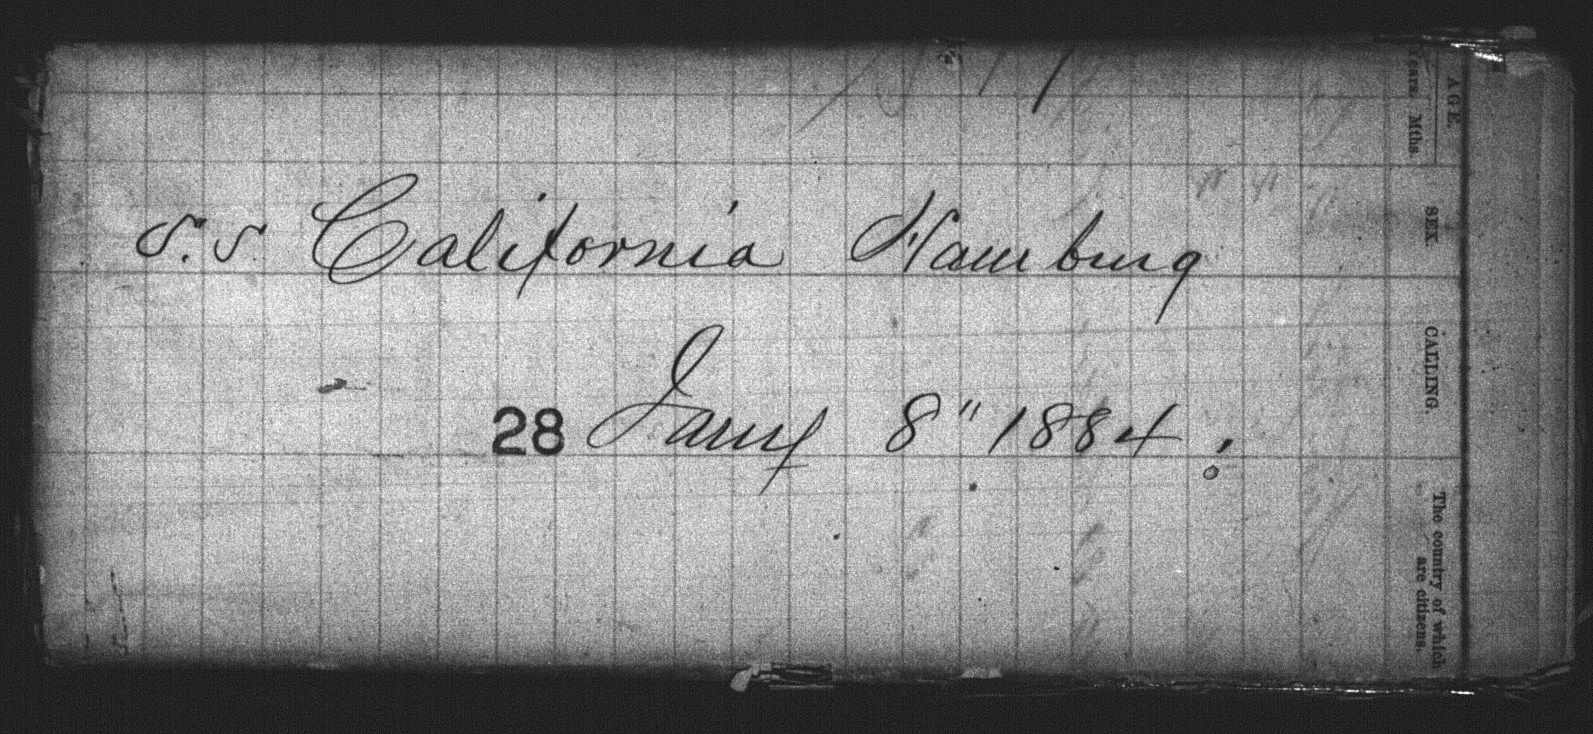 S.S California Hamburg
28 Jany 8" 1884.
AGE.
Years. Mths.
SEX.
CALLING.
The country of which
are citizens.